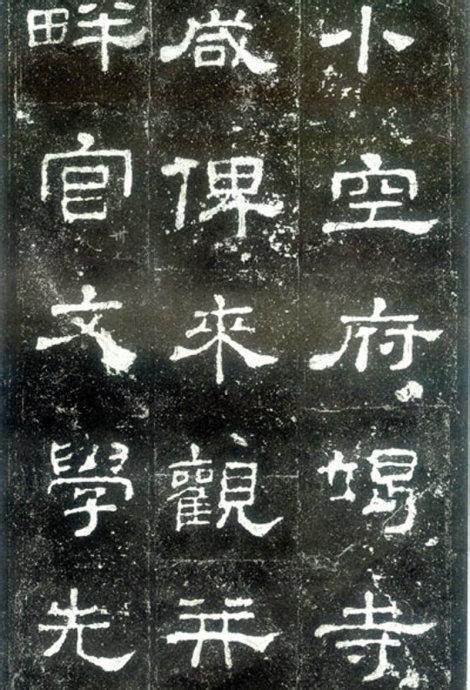 小空府竭寺
咸俾來觀并
畔官文學先